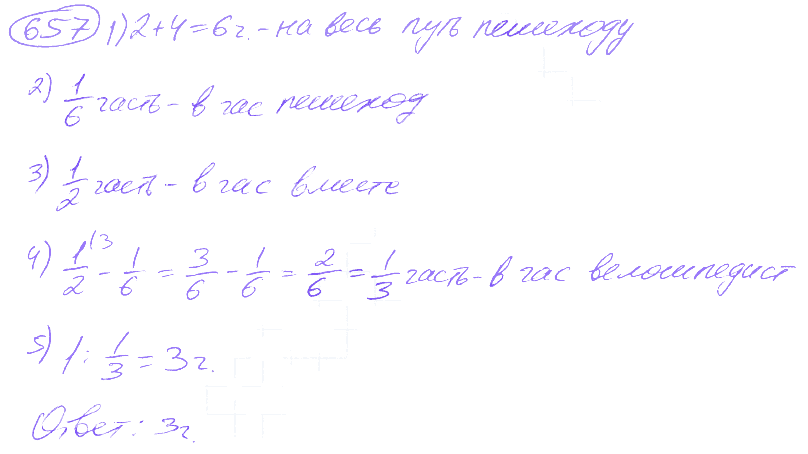 657 1) 2+4=6ч. - на весь путь пешеходу
2) 1/6 часть - в час пешеход
3) 1/2 часть - в час вместе
4) 1/2 (3 - 1/6 = 3/6 - 1/6 = 2/6 = 1/3 часть - в час велосипедист
5) 1 : 1/3 = 3ч.
Ответ: 3ч.